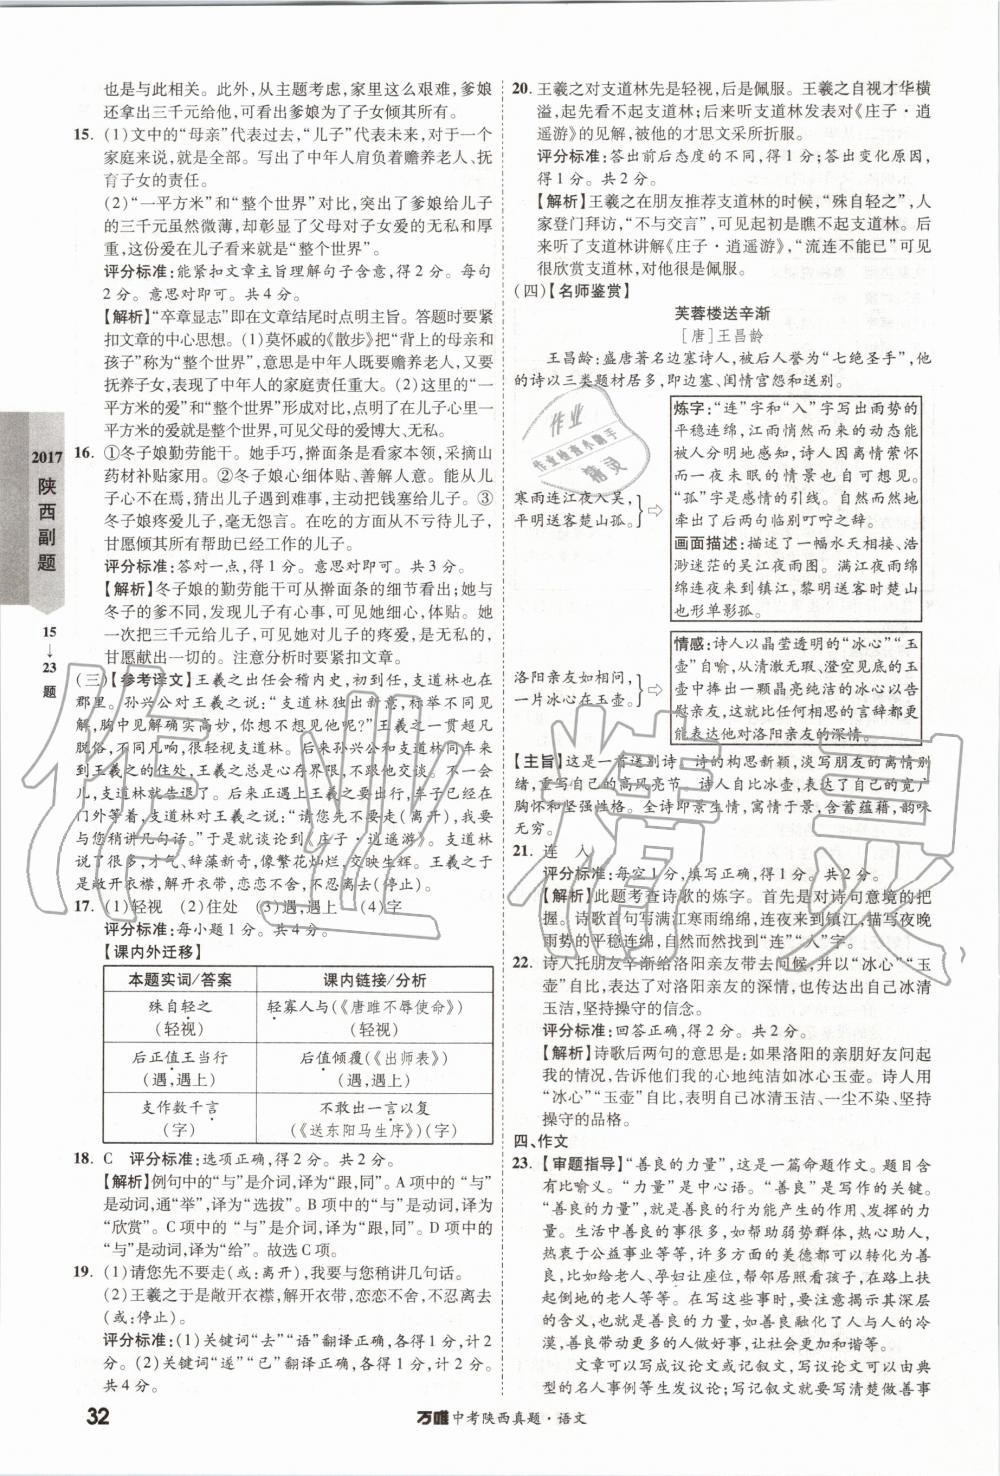 也是与此相关。此外,从主题考虑,家里这么艰难,爹娘
还拿出三千元给他,可看出爹娘为了子女倾其所有。
15. (1)文中的“母亲”代表过去,“儿子”代表未来,对于一个
家庭来说,就是全部。写出了中年人肩负着赡养老人、抚
育子女的责任。
(2)“一平方米”和“整个世界”对比,突出了爹娘给儿子
的三千元虽然微薄,却彰显了父母对子女爱的无私和厚
重,这份爱在儿子看来就是“整个世界”。
评分标准:能紧扣文章主旨理解句子含意,得2分。每句
2分。意思对即可。共4分。
【解析】“卒章显志”即在文章结尾时点明主旨。答题时要紧
扣文章的中心思想。(1)莫怀戚的《散步》把“背上的母亲和
孩子”称为“整个世界”,意思是中年人既要赡养老人,又要
抚养子女,表现了中年人的家庭责任重大。(2)这里的“一
平方米的爱”和“整个世界”形成对比,点明了在儿子心里一
平方米的爱就是整个世界,可见父母的爱博大、无私。
16. ①冬子娘勤劳能干。她手巧,擀面条是看家本领,采摘山
药材补贴家用。②冬子娘心细体贴、善解人意。能从儿
子干活不在焉,猜出儿子遇到难事,主动把钱塞给儿子。③
冬子娘疼爱儿子,毫无怨言。在吃的方面从不亏待儿子,
甘愿倾其所有帮助已经工作的儿子。
评分标准:答对一点,得1分。意思对即可。共3分。
【解析】冬子娘的勤劳能干可从擀面条的细节看出;她与
冬子的爹不同,发现儿子有心事,可见她细心,体贴。她
一次把三千元给儿子,可见她对儿子的疼爱,是无私的,
甘愿献出一切的。注意分析时要紧扣文章。
(三)【参考译文】王羲之出任会稽内史,初到任,支道林也在
郡里。孙兴公对王羲之说:“支道林独出新意,标举不同见
解,胸中见解确实高妙,你想不想见他呢?”王羲之一贯超凡
脱俗,不同凡响,很轻视支道林。后来孙兴公和支道林同车来
到王羲之的住处,王羲之总是心存界限,不跟他交谈。一会
儿,支道林就告退了。后来正遇上王羲之要出行,车子已经在
门外等着,支道林对王羲之说:“请您先不要走(离开),我要
与您稍讲几句话。”于是就谈论到《庄子·逍遥游》。支道林
说了很多,才气、辞藻新奇,像繁花灿烂,交映生辉。王羲之于
是敞开衣襟,解开衣带,恋恋不舍,不到离去(停止)。
17. (1)轻视 (2)住处 (3)遇,遇上 (4)字
评分标准:每小题1分。共4分。
【课内外迁移】
本题实词/答案 课内链接/分析
殊自轻之 轻寡人与(《唐雎不辱使命》)
(轻视) (轻视)
后正值王当行 后值倾覆(《出师表》)
(遇,遇上) (遇,遇上)
支作数千言 不敢出一言以复
(字) (《送东阳马生序》)(字)
18. C 评分标准:选项正确,得2分。共2分。
【解析】例句中的“与”是介词,译为“跟,同”。A项中的“与”
是动词,通“举”,译为“选拔”。B项中的“与”是动词,译为
“欣赏”。C项中的 “与”是介词,译为“跟,同”。D项中的
“与”是动词,译为“给”。故选C项。
19. (1)请您先不要走(或:离开),我要与您稍讲几句话。
(2)王羲之于是敞开衣襟,解开衣带,恋恋不舍,不到离去
(或:停止)。
评分标准:(1)关键词“去”“语”翻译正确,各得1分,计2
分。(2)关键词“遂”“已”翻译正确,各得1分,计2分。
共4分。
32
2017
陕
西
副
题
15
↓
23
题
20. 王羲之对支道林先是轻视,后是佩服。王羲之自视才华横
溢,起先看不起支道林;后来听支道林发表对《庄子·逍
遥游》的见解,被他的才思文采所折服。
评分标准:答出前后态度的不同,得1分;答出变化原因,
得1分。共2分。
【解析】王羲之在朋友推荐支道林的时候,“殊自轻之”,人
家登门拜访,“不与交言”,可见起初是瞧不起支道林。后
来听了支道林讲解《庄子·逍遥游》,“流连不能已”可见
很欣赏支道林,对他很是佩服。
(四)【名师鉴赏】
芙蓉楼送辛渐
[唐]王昌龄
王昌龄:盛唐著名边塞诗人,被后人誉为“七绝圣手”,他
的诗以三类题材居多,即边塞、闺情宫怨和送别。
寒雨连江夜入吴,
平明送客楚山孤。
炼字:“连”字和“入”字写出雨势的
平稳连绵,江雨悄然而来的动态能
被人分明地感知,诗人因离情萦怀
而一夜未眠的情景也自可想见。
“孤”字是感情的引线。自然而然地
牵出了后两句临别叮咛之辞。
画面描述:描写了一幅水天相接、浩
渺迷茫的吴江夜雨图。满江夜雨连
绵连夜来到镇江,黎明送客时楚山
也形单影孤。
洛阳亲友如相问,
一片冰心在玉壶。
情感:诗人以晶莹透明的“冰心”“玉
壶”自喻,从清澈无瑕、澄空见底的玉
壶中捧出一颗晶亮纯洁的冰心以告
慰亲友,这就比任何相思的言辞都更
能表达他对洛阳亲友的深情。
【主旨】这是一首送别诗。诗的构思新颖,淡写朋友的离情别
绪,重写自己的高风亮节。诗人自比冰壶,表达了自己的宽广
胸怀和坚强性格。全诗即景生情,寓情于景,含蓄蕴藉,韵味
无穷。
21. 连 入
评分标准:每空1分,填写正确,得1分。共2分。
【解析】此题考查诗歌的炼字。首先是对诗句意境的把
握。诗歌首句写满江寒雨绵绵,连夜来到镇江,描写夜晚
雨势的平稳连绵,自然而然找到“连”“入”字。
22. 诗人托朋友辛渐给洛阳亲友带去问候,并以“冰心”“玉
壶”自比,表达了对洛阳亲友的深情,也传达出自己冰清
玉洁,坚持操守的信念。
评分标准:回答正确,得2分。共2分。
【解析】诗歌后两句的意思是:如果洛阳的亲朋好友问起
我的情况,告诉他们我的心地纯洁如冰心玉壶。诗人用
“冰心”“玉壶”自比,表明自己冰清玉洁、一尘不染、坚持
操守的品格。
四、作文
23. 【审题指导】“善良的力量”,这是一篇命题作文。题目含
有比喻义。“力量”是中心语。“善良”是写作的关键。
“善良的力量”,就是善良的行为能产生的作用、发挥的力
量。生活中善良的事很多,如帮助弱势群体,热心事业,
热衷于公益事业等等,许多方面的美德都可以转化为善
良,比如给老人、孕妇让座位,帮邻居照看孩子,在路上扶
起倒地的老人等等。在写这些事时,要注意点出其深层
的含义,也就是善良的力量,比如善良融化了人心的冷
漠,善良带动更多的人做好事,让社会更加和谐等。
文章可以写成议论文或记叙文,写议论文可以由典
型的名人事例等生发议论;写记叙文就要描写善良事
万唯中考陕西真题·语文
作业
作业检查小助手
精灵
作业精灵